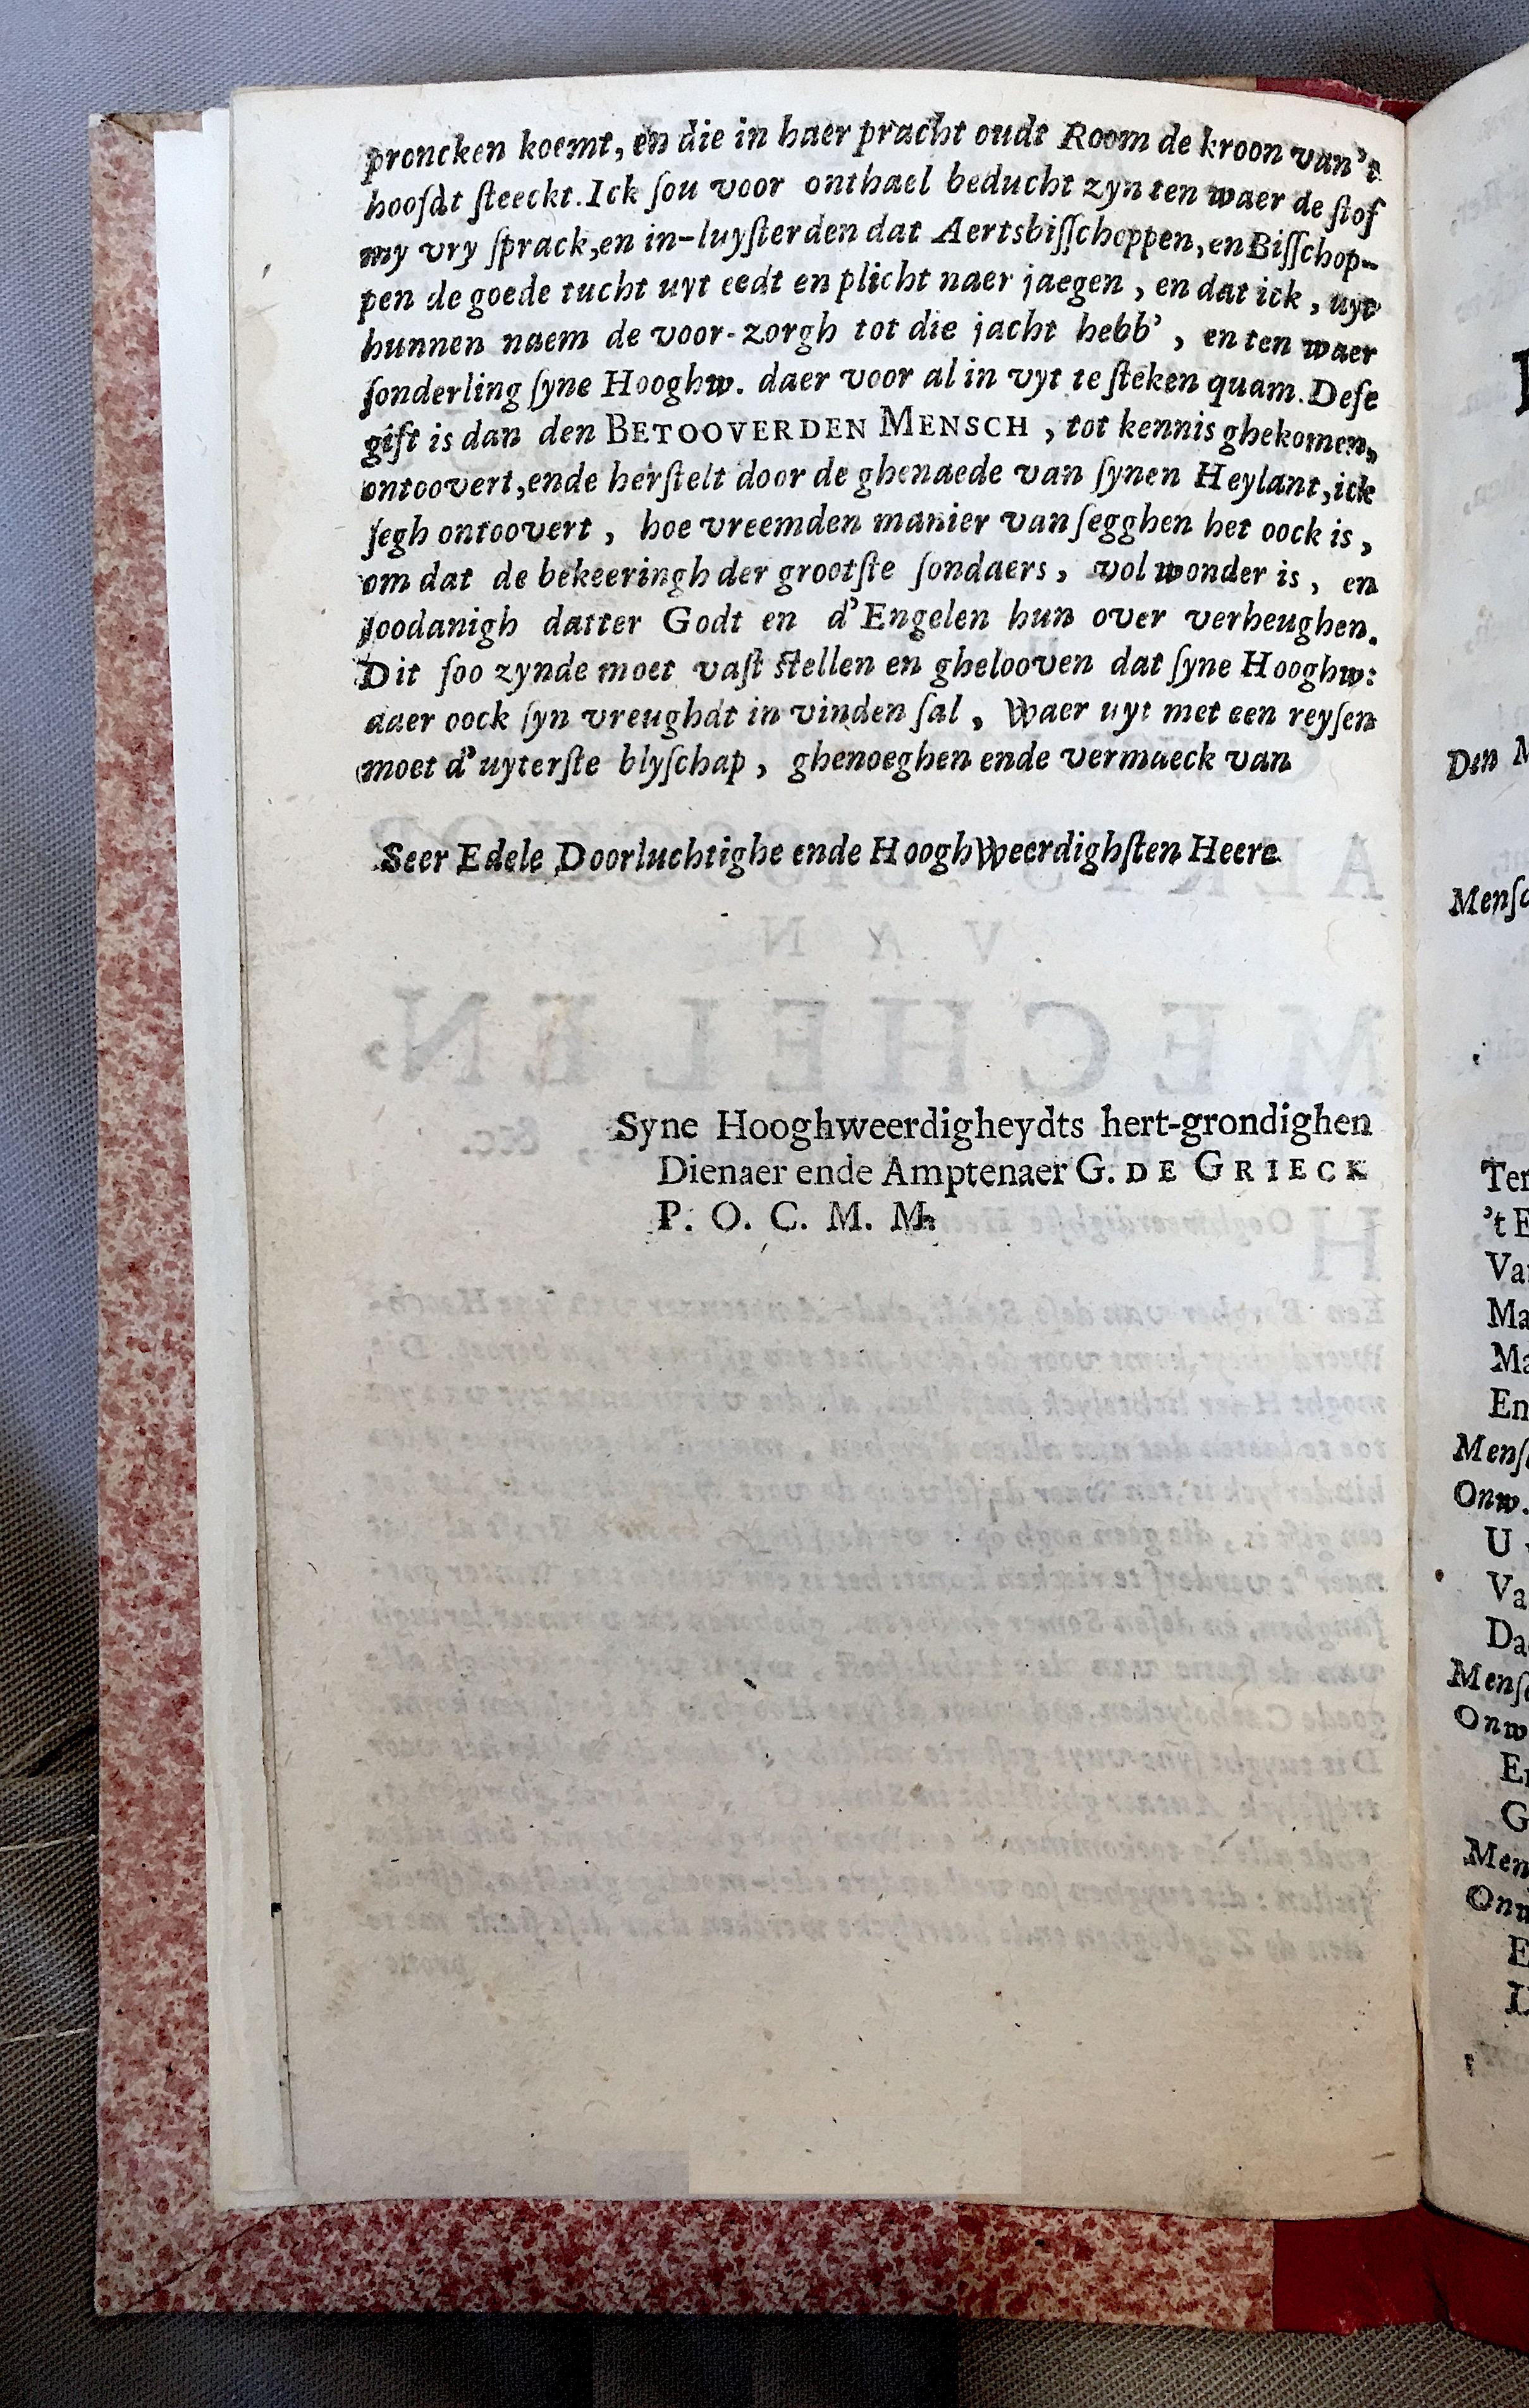 proncken koemt, en die in haer pracht oudt Room de kroon van't
hoofdt ſteeckt. Ick ſou voor onthael beducht zyn ten waer de ſtof
my vry ſprack, en in-luyſterden dat Aertsbiſſchoppen, en Biſſchop-
pen de goede tucht uyt eedt en plicht naer jaegen, en dat ick, uyt
hunnen naem de voor-zorgh tot die jacht hebb', en ten waer
ſonderling ſyne Hooghw. daer voor al in vyt te ſteken quam. Deſe
gift is dan den BETOOVERDEN MENSCH, tot kennis ghekomen,
ontoovert, ende herſtelt door de ghenaede van ſynen Heylant, ick
ſegh ontoovert, hoe vreemden manier van ſegghen het oock is,
om dat de bekeeringh der grootſte ſondaers, vol wonder is, en
ſoodanigh datter Godt en d'Engelen hun over verheughen.
Dit ſoo zynde moet vaſt ſtellen en ghelooven dat ſyne Hooghw:
daer oock ſyn vreughdt in vinden ſal, Waer uyt met een reyſen
moet d'uyterſte blyſchap, ghenoeghen ende vermaeck van
Seer Edele Doorluchtighe ende HooghWeerdighſten Heere
Syne Hooghweerdigheydts hert-grondighen
Dienaer ende Amptenaer G. DE GRIECK
P. O. C. M. M.
Den
Menſ
Ter
't E
Va
Ma
Ma
En
Menſ
Onw.
U
Va
Da
Menſ
Onw
E
G
Men
On
E